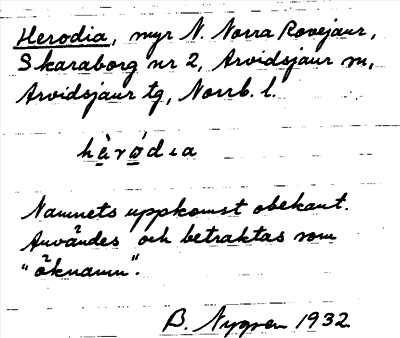 Herodia, myr N. Norra Rovejaur,
Skaraborg nr 2, Arvidsjaur sn,
Arvidsjaur tg, Norrb. l.
hèródıa
Namnets uppkomst obekant.
Användes och betraktas som
"öknamn".
B. Nygren 1932